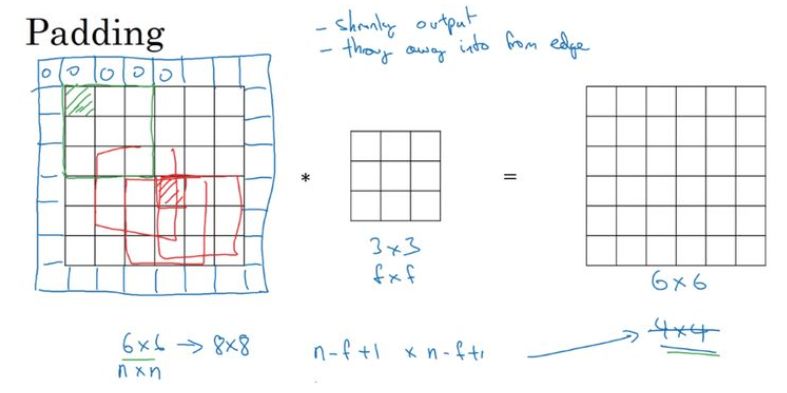 Padding
- shrinky output
- throw away info from edge
0 0 0 0 0
* =
3×3
f×f
6×6
6×6 → 8×8
n×n
n-f+1 × n-f+1
4×4